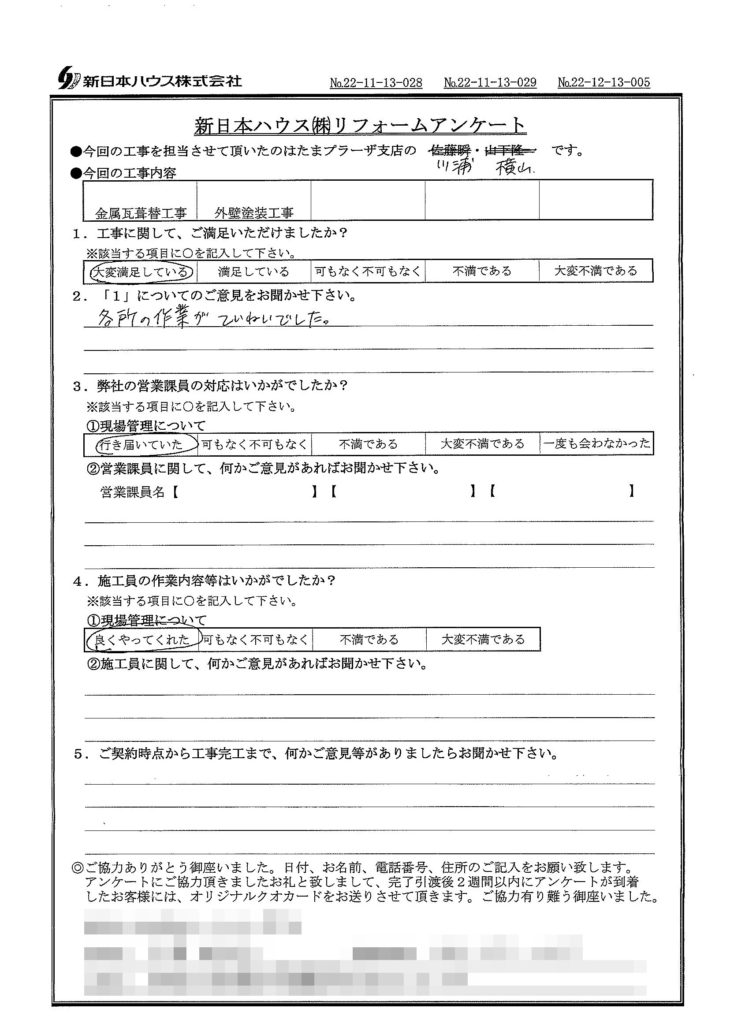 新日本ハウス株式会社 №22-11-13-028 №22-11-13-029 №22-12-13-005
新日本ハウス㈱リフォームアンケート
●今回の工事を担当させて頂いたのはたまプラーザ支店の 佐藤瞬・山下隆一 です。
川浦 横山
●今回の工事内容
金属瓦葺替工事 外壁塗装工事
1．工事に関して、ご満足いただけましたか？
※該当する項目に○を記入して下さい。
大変満足している 満足している 可もなく不可もなく 不満である 大変不満である
2．「1」についてのご意見をお聞かせ下さい。
各所の作業がていねいでした。
3．弊社の営業課員の対応はいかがでしたか？
※該当する項目に○を記入して下さい。
①現場管理について
行き届いていた 可もなく不可もなく 不満である 大変不満である 一度も会わなかった
②営業課員に関して、何かご意見があればお聞かせ下さい。
営業課員名【 】【 】【 】
4．施工員の作業内容等はいかがでしたか？
※該当する項目に○を記入して下さい。
①現場管理について
良くやってくれた 可もなく不可もなく 不満である 大変不満である
②施工員に関して、何かご意見があればお聞かせ下さい。
5．ご契約時点から工事完工まで、何かご意見等がありましたらお聞かせ下さい。
◎ご協力ありがとう御座いました。日付、お名前、電話番号、住所のご記入をお願い致します。
アンケートにご協力頂きましたお礼と致しまして、完了引渡後２週間以内にアンケートが到着
したお客様には、オリジナルクオカードをお送りさせて頂きます。ご協力有り難う御座いました。